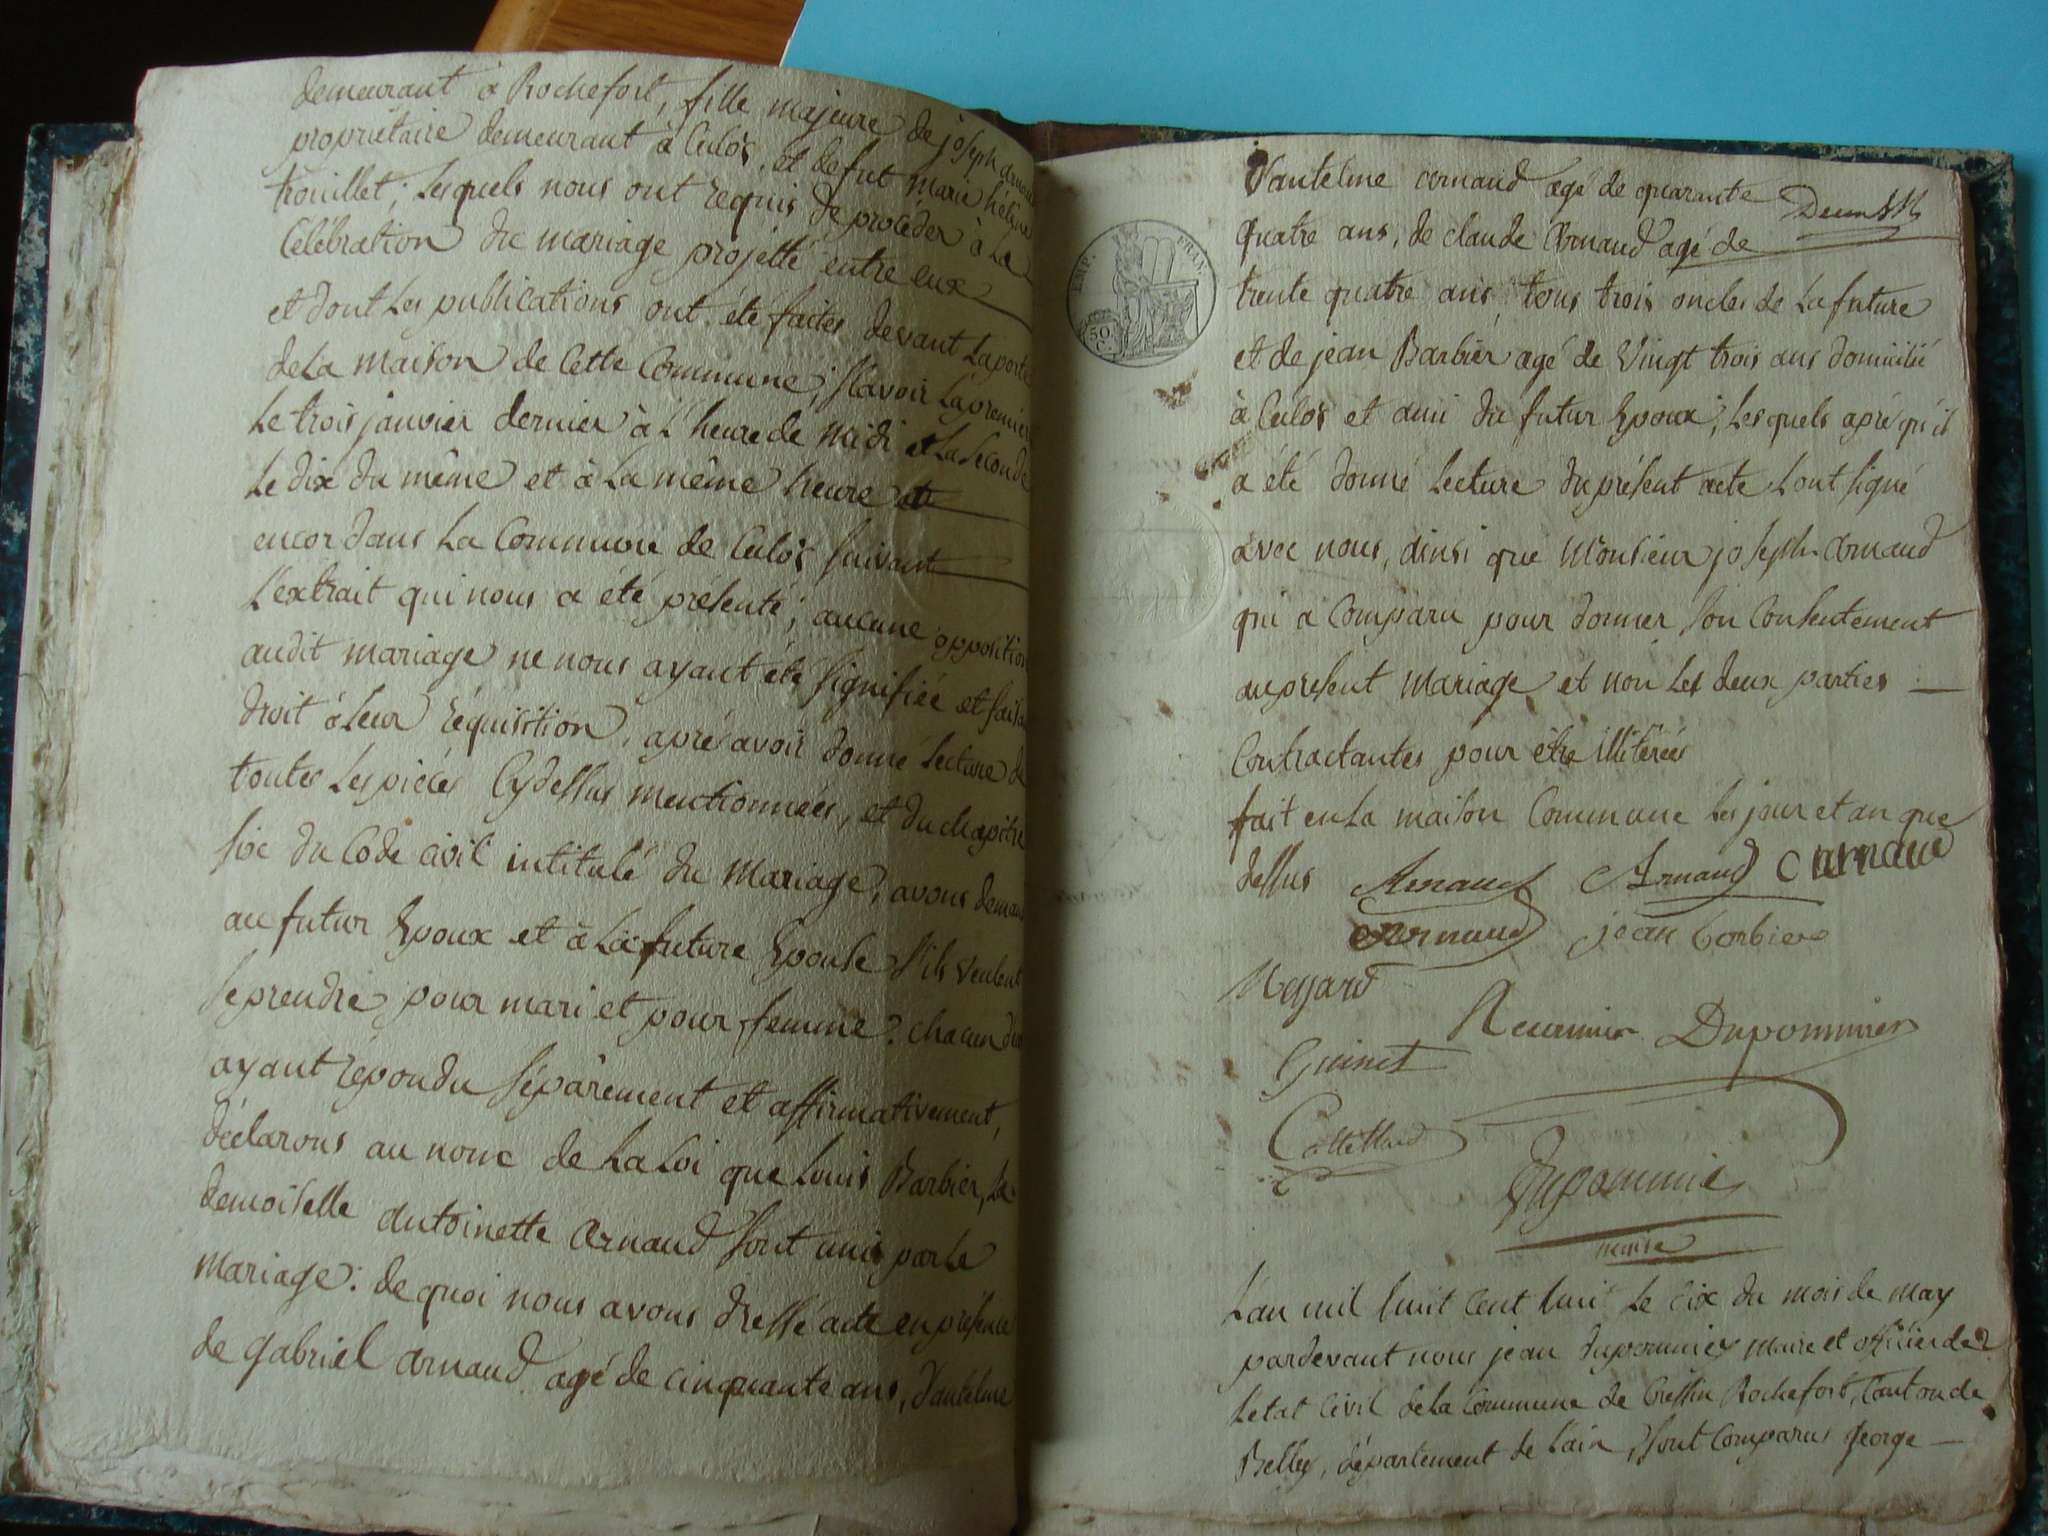 demeurant à Rochefort, fille majeure de joseph arnaud
propriétaire demeurant à Culos, et de fut marie hélène
trouillet; Lesquels nous ont requis de procéder à La
Célébration du mariage projetté entre eux
et dont Les publications ont été faites devant Laporte
de La maison de Cette Commune; Savoir Lapremière
Le trois janvier dernier à L'heure de midi et La Seconde
Le dix du même et à La même heure et
encor dans La Commune de Culos suivant
L'extrait qui nous a été présenté; aucune opposition
audit mariage ne nous ayant été signifiée et faisant
droit à Leur réquisition, apré avoir donné Lecture de
toutes Les piéces Cydessus mentionnées, et du chapitre
six du Code civil intitulé du Mariage, avons demandé
au futur Epoux et à La future Epouse s'ils veulent
se prendre pour mari et pour femme? chacun d'eux
ayant répondu séparement et affirmativement,
déclarons au nom de La Loi que Louis Barbier, La
demoiselle antoinette arnaud sont unis par le
mariage: de quoi nous avons dressé acte en présence
de gabriel arnaud agé de cinquante ans, d'antelme
d'antelme arnaud agé de quarante
quatre ans, de claude Arnaud agé de
EMP. FRAN.
50 C
trente quatre ans, tous trois oncles de La future
et de jean Barbier agé de vingt trois ans domicilié
à Culos et ami du futur Epoux; Lesquels apré qu'il
a été donné Lecture du présent acte L'ont signé
avec nous, ainsi que Monsieur joseph arnaud
qui a Comparu pour donner son Consentement
au présent mariage et non Les deux parties
Contractantes pour être illitérées
fait en La maison Commune Les jour et an que
dessus Arnaud Arnaud Carnaud
Arnaud jean barbier
Meyard
Dupommier
Guinet
Dupommier
maire
L'an mil huit cent huit Le dix du mois de may
pardevant nous jean dupommier maire et officier de
Letat Civil de La Commune de Cressin Rochefort, Canton de
Belley, département de L'ain, sont Comparus george